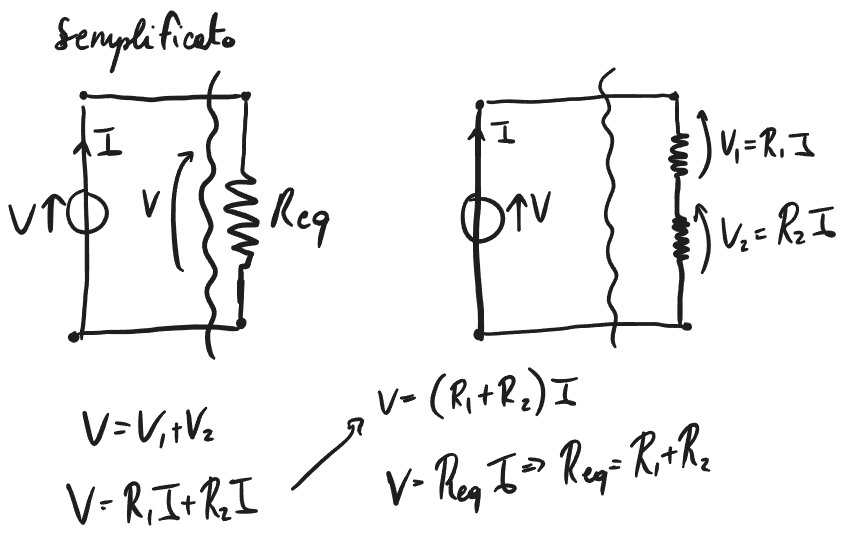 Semplificato
I
I
V
V
Req
V
V₁=R₁I
V₂=R₂I
V=V₁+V₂
V=R₁I+R₂I
V=(R₁+R₂)I
V=Req I⇒Req=R₁+R₂